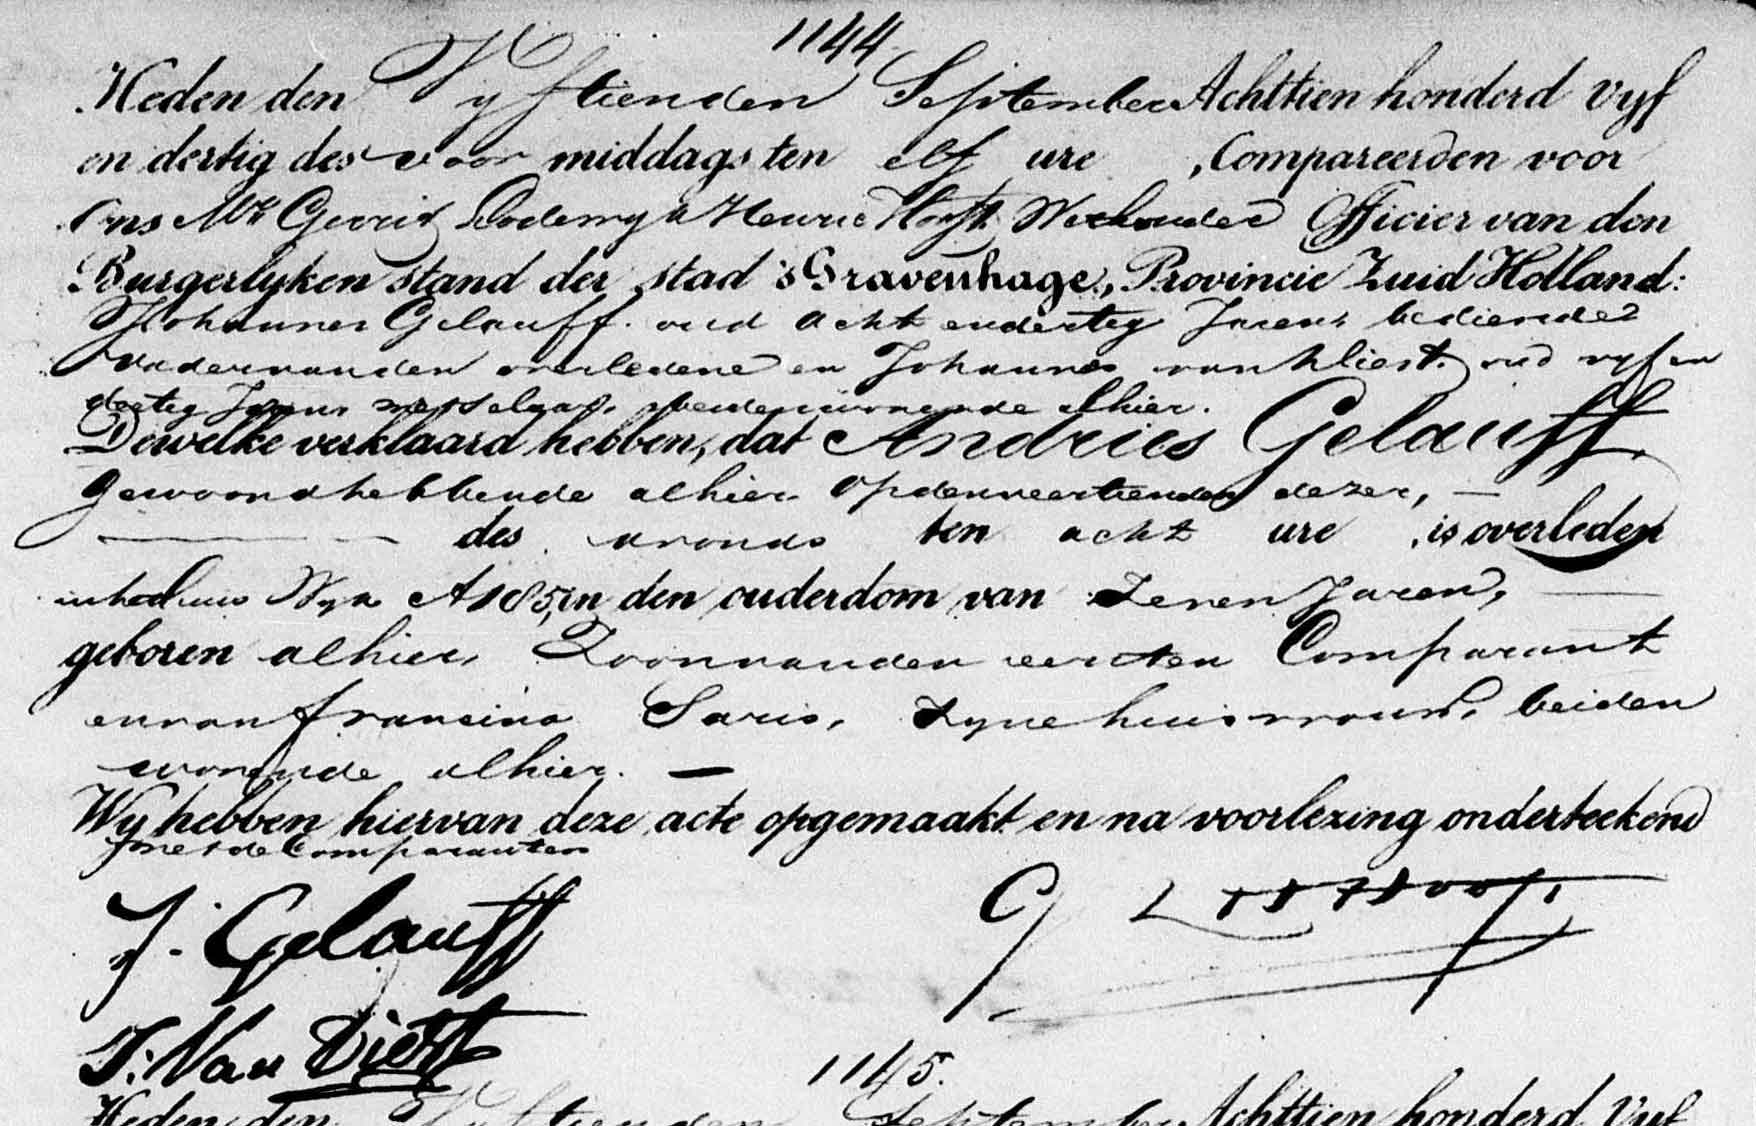 1144
Heden den Vyftienden September Achttien honderd Vyf
en dertig des voor middags ten elf ure , Compareerden voor
Ons Mr. Gerrit Lodewyk Hooft Wethouder Officier van den
Burgerlyken stand der stad 's Gravenhage, Provincie Zuid Holland:
Johannes Gelauff. oud acht en dertig Jaren, bediende
vader van den overledene en Johannes van oud vyf en
dertig Jaren metselaar, beide wonende alhier.
Dewelke verklaard hebben, dat Andries Gelauff
gewoond hebbende alhier op den veertienden dezer, —
— des avonds ten acht ure , is overleden
in het huis Wyk A 185, in den ouderdom van Zeven Jaren, —
geboren alhier, Zoon van den eersten Comparant
en van Francina Saris, Zyne huisvrouw, beiden
wonende alhier. —
Wy hebben hiervan deze acte opgemaakt en na voorlezing onderteekend
met de Comparanten
J. Gelauff
G L Hooft
J: Van Diest
1145.
Heden den Vyftienden September Achttien honderd Vyf